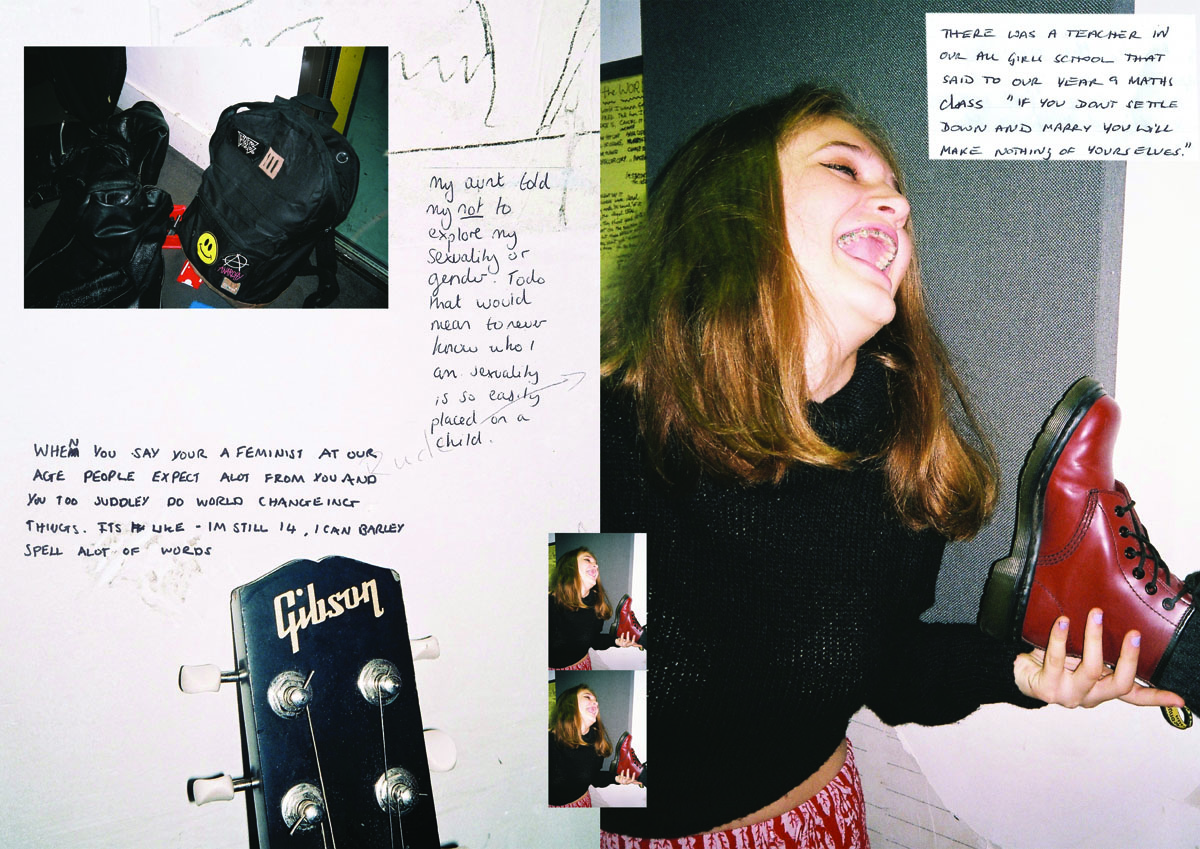 my aunt told
my not to
explore my
sexuality or
gender. Todo
that would
mean to never
know who I
am sexuality
is so easily
placed on a
child.
Rude
WHEN YOU SAY YOUR A FEMINIST AT OUR
AGE PEOPLE EXPECT ALOT FROM YOU AND
YOU TOO SUDDLEY DO WORLD CHANGEING
THINGS. ITS LIKE - IM STILL 14, I CAN BARLEY
SPELL ALOT OF WORDS
Gibson
THERE WAS A TEACHER IN
OUR ALL GIRLS SCHOOL THAT
SAID TO OUR YEAR 9 MATHS
CLASS "IF YOU DONT SETTLE
DOWN AND MARRY YOU WILL
MAKE NOTHING OF YOURSELVES."
the WOR